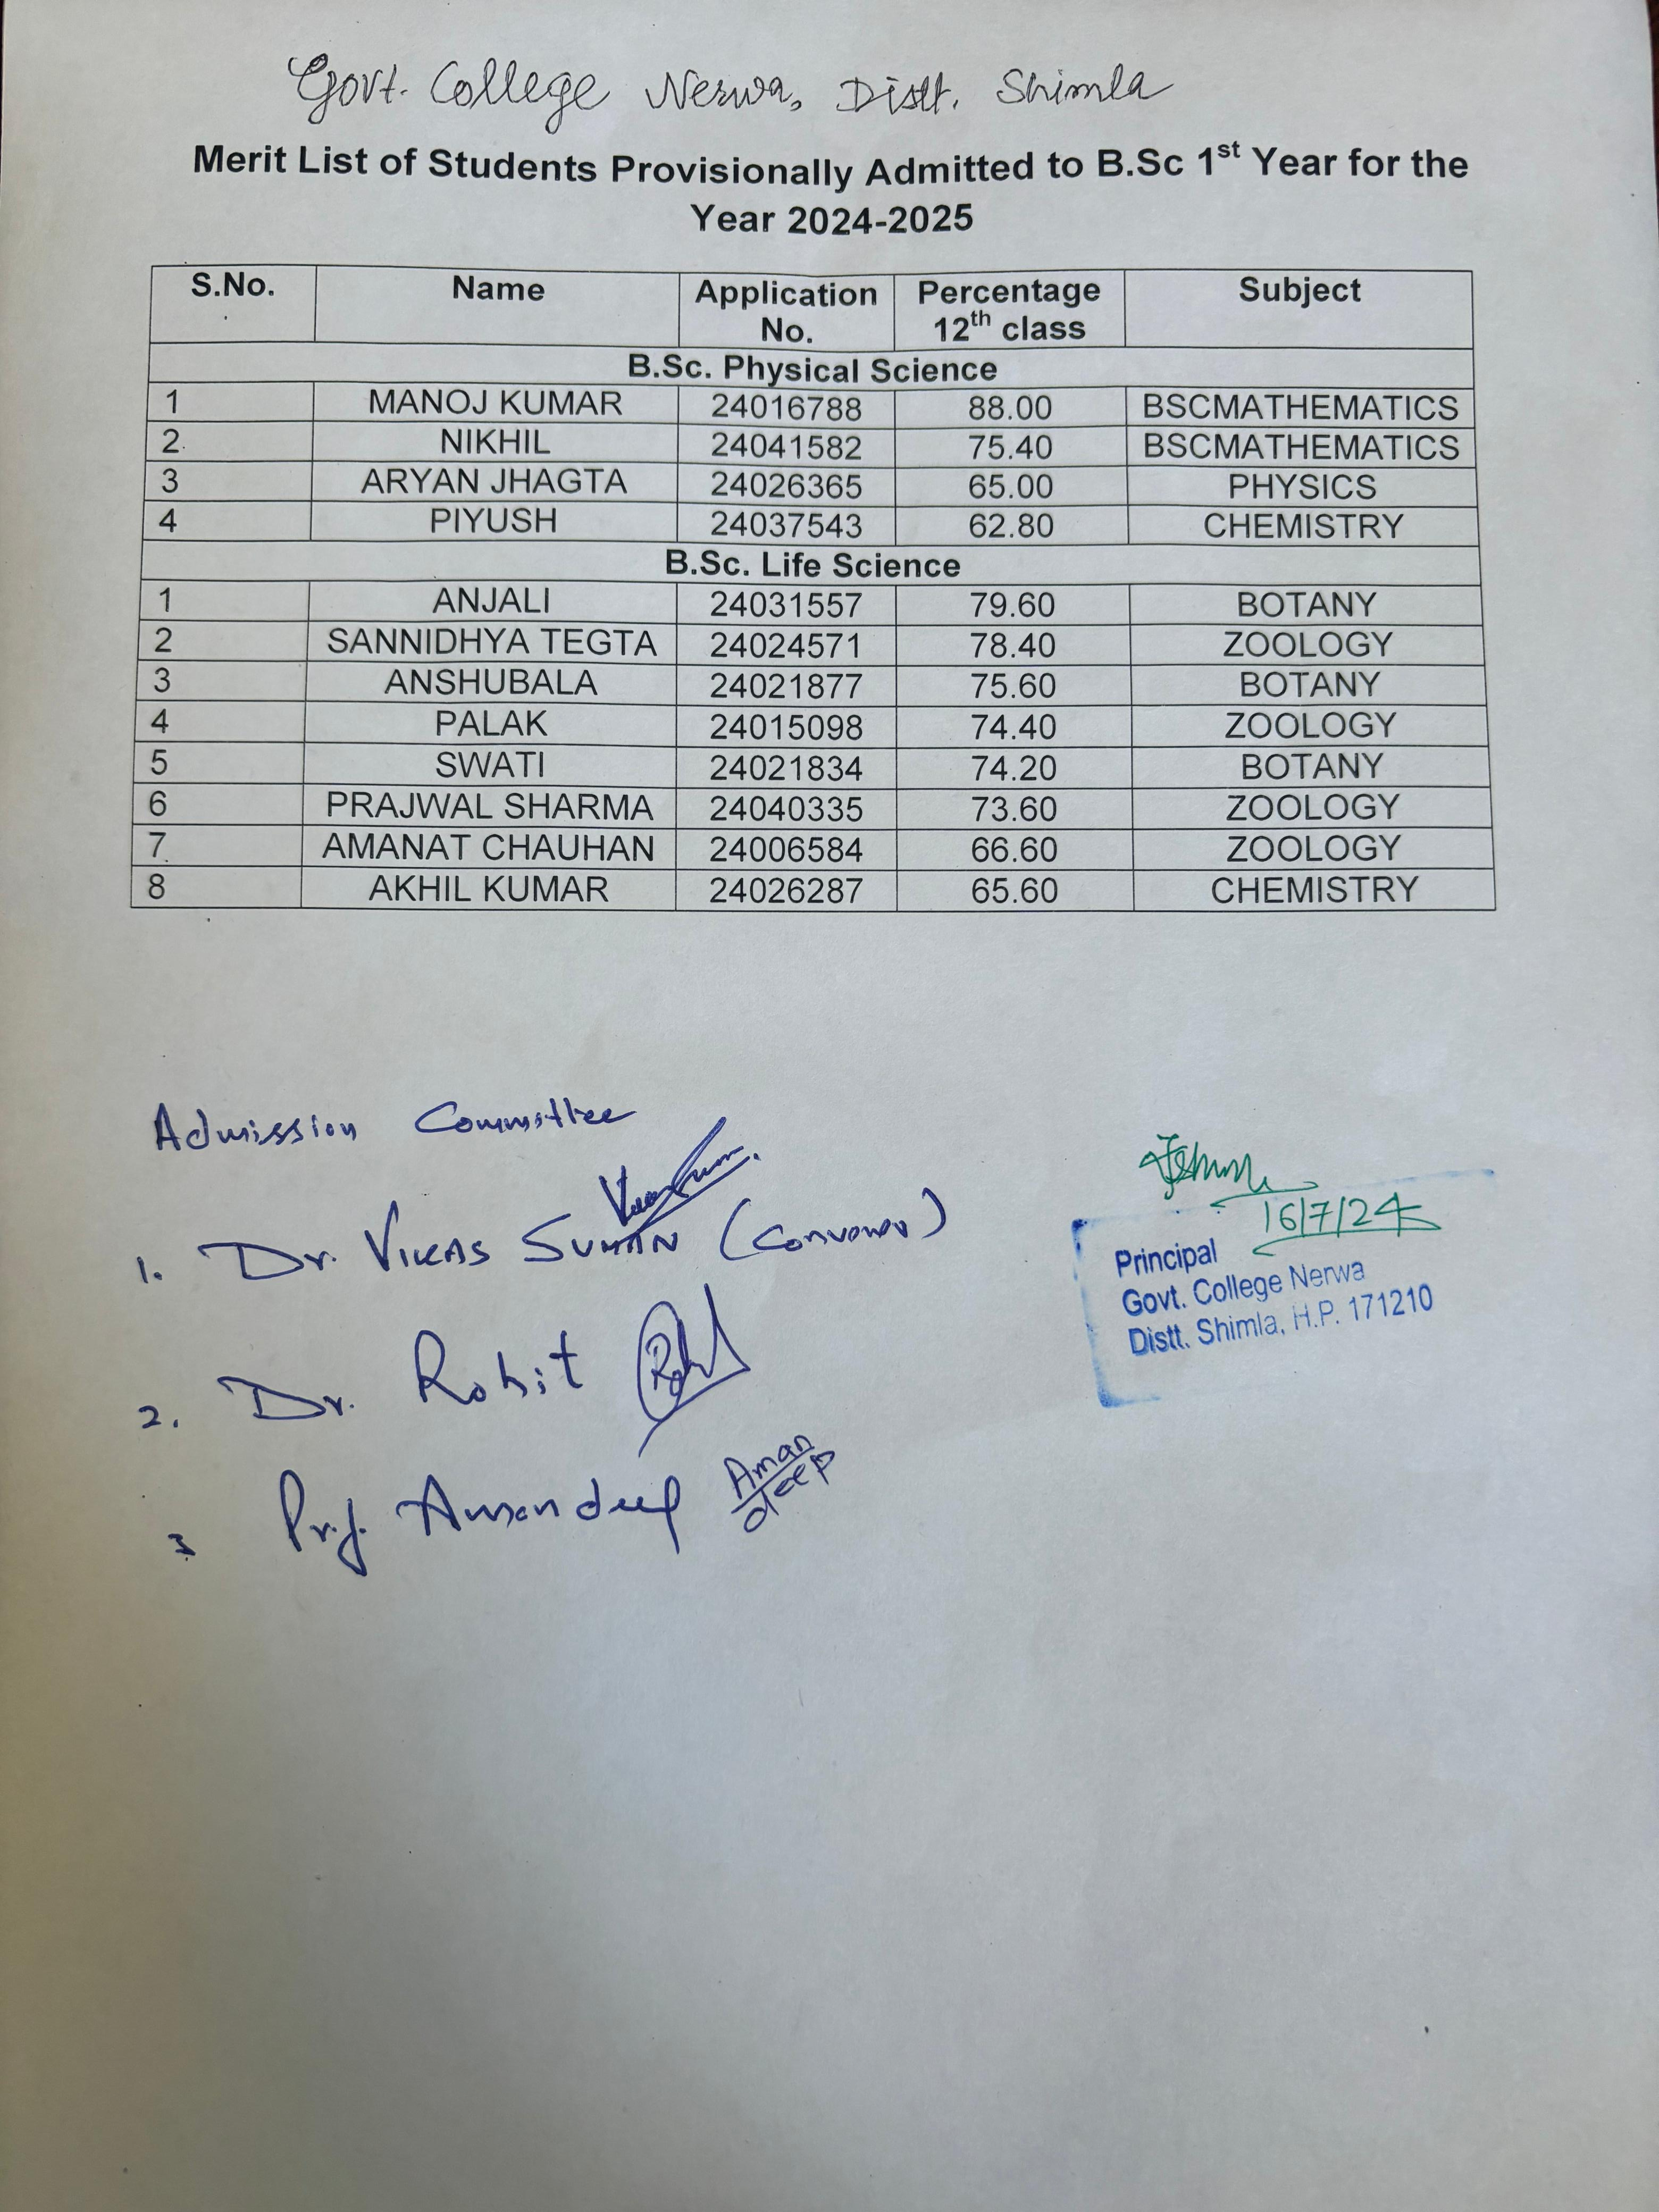 Govt. College Nerwa, Distt. Shimla
Merit List of Students Provisionally Admitted to B.Sc 1st Year for the
Year 2024-2025
S.No. Name Application No. Percentage 12th class Subject
B.Sc. Physical Science
1 MANOJ KUMAR 24016788 88.00 BSCMATHEMATICS
2 NIKHIL 24041582 75.40 BSCMATHEMATICS
3 ARYAN JHAGTA 24026365 65.00 PHYSICS
4 PIYUSH 24037543 62.80 CHEMISTRY
B.Sc. Life Science
1 ANJALI 24031557 79.60 BOTANY
2 SANNIDHYA TEGTA 24024571 78.40 ZOOLOGY
3 ANSHUBALA 24021877 75.60 BOTANY
4 PALAK 24015098 74.40 ZOOLOGY
5 SWATI 24021834 74.20 BOTANY
6 PRAJWAL SHARMA 24040335 73.60 ZOOLOGY
7 AMANAT CHAUHAN 24006584 66.60 ZOOLOGY
8 AKHIL KUMAR 24026287 65.60 CHEMISTRY
Admission Committee
1. Dr. VIKAS SUMAN (Convener)
2. Dr. Rohit
3 Prof. Amandeep
Aman
deep
16/7/24
Principal
Govt. College Nerwa
Distt. Shimla, H.P. 171210